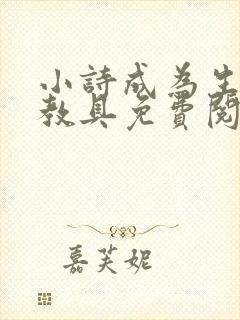 小詩成為生
教具免費閱
嘉芙妮